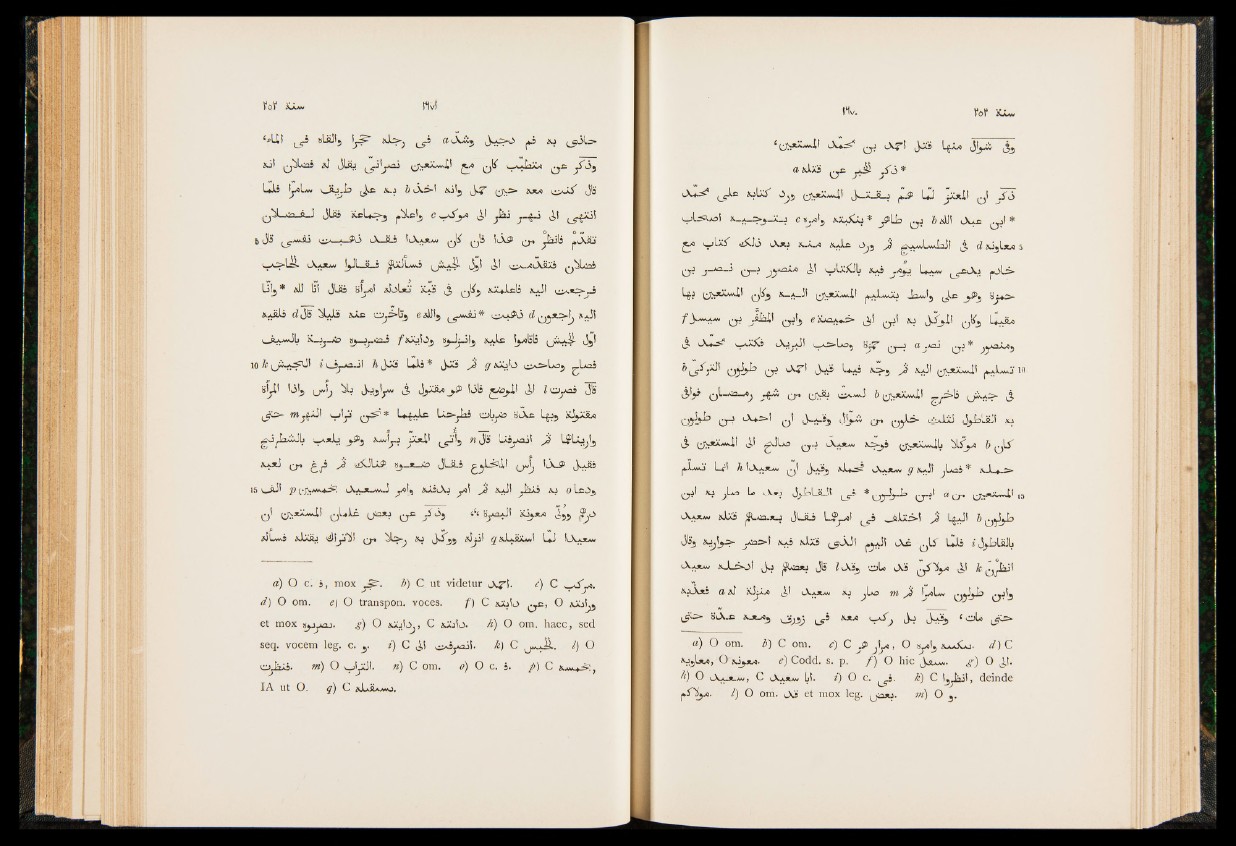 سنة ٢٥٢ ١٦٧٠
وفى شوال منها قتل احمد بن محمّد المستعين،
*ذكر الخبر عن قتله a
ذكر ان المعتز لمّا همّ بقتل المستعين ورد كتابه على محمّد
*ابن عبد الله b بن طاهر *بنكبته وامره c بتوجيه اصحاب
5 معاونه d فى الطساسيج ثم ورد عليه منه بعد ذلك كتاب مع
خادم يدعى سيما يُؤمر فيه بالكتاب الى منصور بن نصر بن
حمزة وهو على واسط بتسليم المستعين اليه وكان المستعين بها
مقيما وكان الموكّل به ابن ابى خميصة e وابن المظفّر بن سيسل f
ومنصور *بن نصر a بن حمزة وصاحب البريد فكتب محمّد فى
10 تسليم المستعين اليه ثم وجّه فيما قيل احمد بن طولون التركى b
فى جيش فاخرج المستعين b لستّ بقين من شهر رمضان فوافى
به القاطول لثلث خلون من شوّال وقيل ان احمد بن طولون
كان b موكّلا بالمستعين فوجّه سعيد بن صالح الى المستعين فى
حمله *فصار اليه g سعيد فحمله وقيل انّ سعيدا h انما تسلّم
15 المستعين من a ابن طولون* فى القاطول بعد ما صار به ابن
طولون b اليها ثم اختلف فى امرهما فقال بعضهم قتله سعيد
بالقاطول i فلمّا كان غد اليوم الذى قتله فيه احضر جواريه وقال
انظُرْنَ k الى مولاكنّ قد مات وقد l قال بعضهم بل ادخله سعيد
وابن طولون سامرّا ثم m صار به سعيد الى منزله له a فعذّبه
حتى مات، وقيل بل ركب معه فى زورق ومعه عدّة حتى
a) O om. b) C om. c) C مرار هر, O سكسه وامره. d) C
معاويه, O معونه. e) Codd. s. p. f) O hic سعل. g) O الى.
h) O سعيد, C ابا سعيد. i) O c. فى. k) C انظروا, deinde
مولاكم. l) O om. قد et mox leg. بعض. m) O و.
١٦٧١ سنة ٢٥٢
حاذى به فم دجيل وشدّ a فى رجله حَجَرا والقاه فى الماء،
وذكر عن متطبّب كان مع المستعين نصرانىّ يقال له فضلان انه
قال كنت معه حين حُمل وانه اخذ b به على طريق سامرّا فلمّا
انتهى الى نهر نظر الى موكب c واعلام وجماعة فقال لفضلان
5 تقدّمْ فانظُرْ من هذا فان كان سعيدا فقد ذهبت نفسى قال
فضلان فتقدّمت الى اوّل الجيش فسألتهم فقالوا سعيد الحاجب
فرجعت اليه فاعلمته وكان فى قبّة تُعادله امرأة فقال انّا لله *وانّا
اليه راجعون d ذهبت *نفسى والله e وتأخّرت عنه قليلا قال d فلقيه
اوّل الجيش فاقاموا عليه وانزلوه ودايته f فضربوه ضربة بالسيف
10 فصاح وصاحت دايته g ثم قتل *فلمّا قتل h انصرف i الجيش k
قال فصرت l الى الموضع فاذا هو مقتول فى سراويل بلا رأس واذا امرأة
مقتولة وبها عدّة ضربات فطرحنا عليهما *نحن تراب النهر m حتى
واريناهما ثم انصرفنا قال n وأُتى المعتزّ برأسه وهو يلعب بالشطرنج
فقيل هذا رأس المخلوع فقال ضعوه هنالك ثم فرغ من لعبه
15 ودعا o به فنظر اليه ثم امر بدفنه وامر لسعيد بخمسين p الف
درهم ووُلّى معونة البصرة، وذكر عن بعض غلمان المستعين ان
سعيدا لمّا استقبله q انزله ووكّل به رجلا من الاتراك يقتله فسأله
a) O c. ف, mox حجر. b) C ut videtur احمد. c) C مركب.
d) O om. e) O transpon. voces. f) C عن دابته, O ورانته
et mox نصربوه. g) O ردابته, C دابته. h) O om. haec, sed
seq. vocem leg. c. و. i) C انصرفت الى. k) C الجيش. l) O
فنظرت. m) O التراب. n) C om. o) O c. ف. p) C بخمسة,
IA ut O. q) C سىقبله.